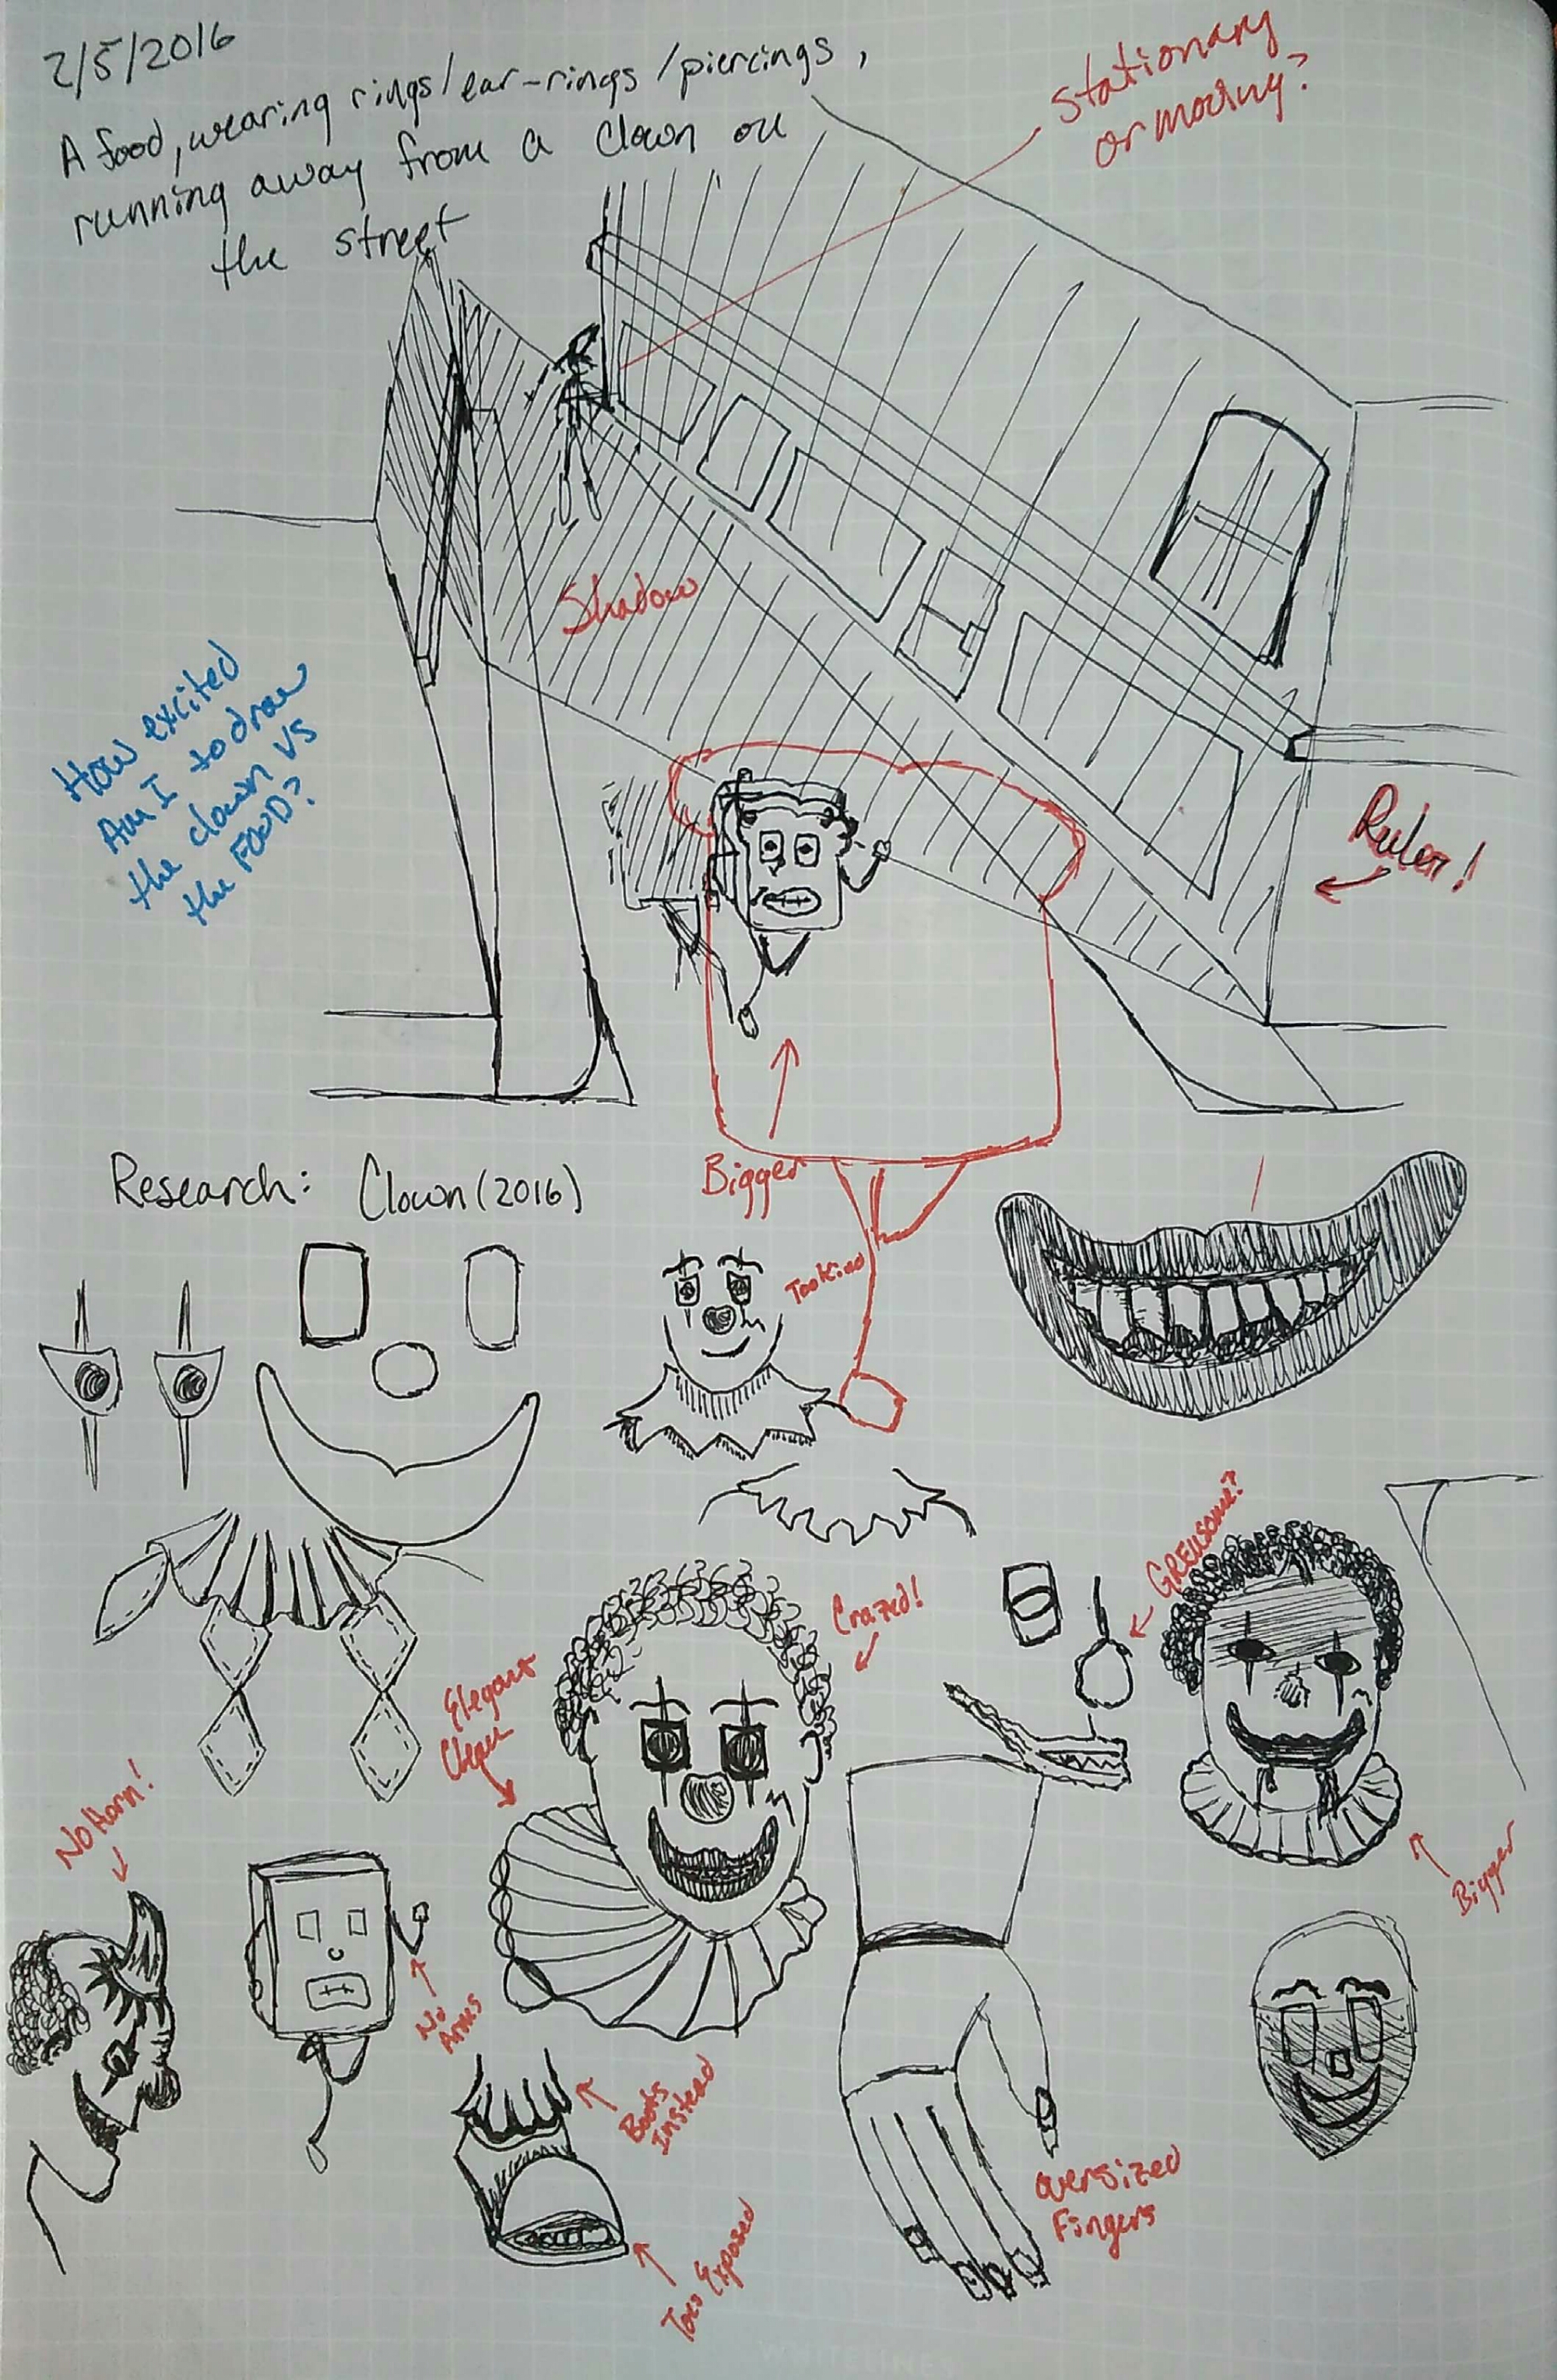 2/5/2016
A food, wearing rings/ear-rings/piercings,
running away from a clown on
the street
stationary
or moving?
Shadow
How excited
Am I to draw
the clown vs
the FOOD?
Ruler!
Bigger
Research: Clown (2016)
Too Kind
GREUSOME?
Crazed!
Elegant
No Horn!
Bigger
No
Arms
Boots
Instead
oversized
Fingers
Toes Exposed
WHITELINES